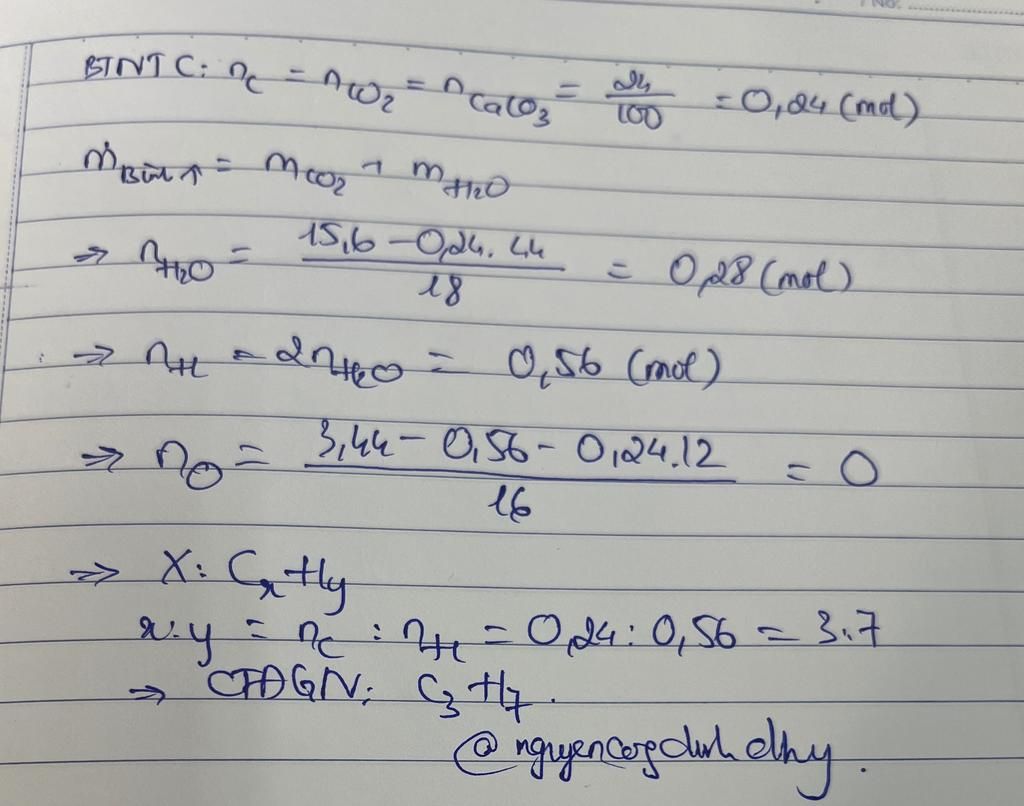 No:
BTNT C: nC = nCO2 = nCaCO3 = 24/100 = 0,24 (mol)
mBình↑ = mCO2 + mH2O
⇒ nH2O = (15,6 - 0,24.44)/18 = 0,28 (mol)
⇒ nH = 2nH2O = 0,56 (mol)
⇒ nO = (3,44 - 0,56 - 0,24.12)/16 = 0
⇒ X: CxHy
x:y = nC : nH = 0,24 : 0,56 = 3:7
⇒ CTĐGN: C3H7.